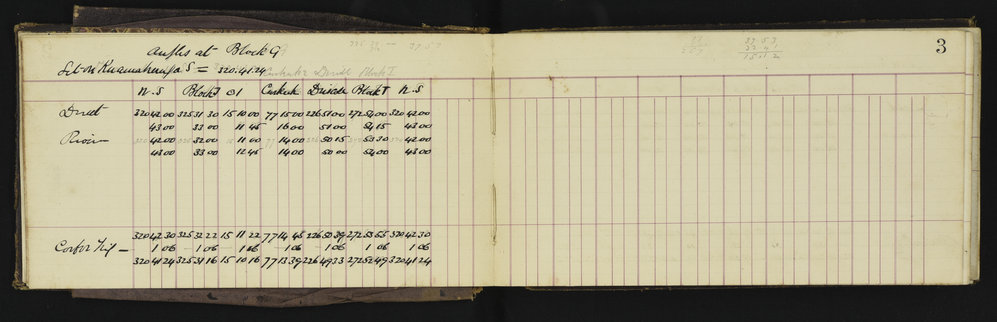 Angles at Block G
3
Set on Kuamahanga S = 320.41.24
N.S Block J ⊙1 Dundee Block T N.S
Direct 320 42 00 325 31 30 15 10 00 77 15 00 226 51 00 272 54 00 320 42 00
43 00 33 00 11 45 16 00 51 00 54 15 43 00
42 00 32 00 11 00 14 00 50 15 53 30 42 00
43 00 33 00 12 45 14 00 50 00 54 00 43 00
320 42 30 325 32 22 15 11 22 77 14 45 226 50 39 272 53 55 320 42 30
Cor for Kg — 1 06 1 06 1 06 1 06 1 06 1 06 1 06
320 41 24 325 31 16 15 10 16 77 13 39 226 49 33 272 52 49 320 41 24
37 53
22 41
15.12